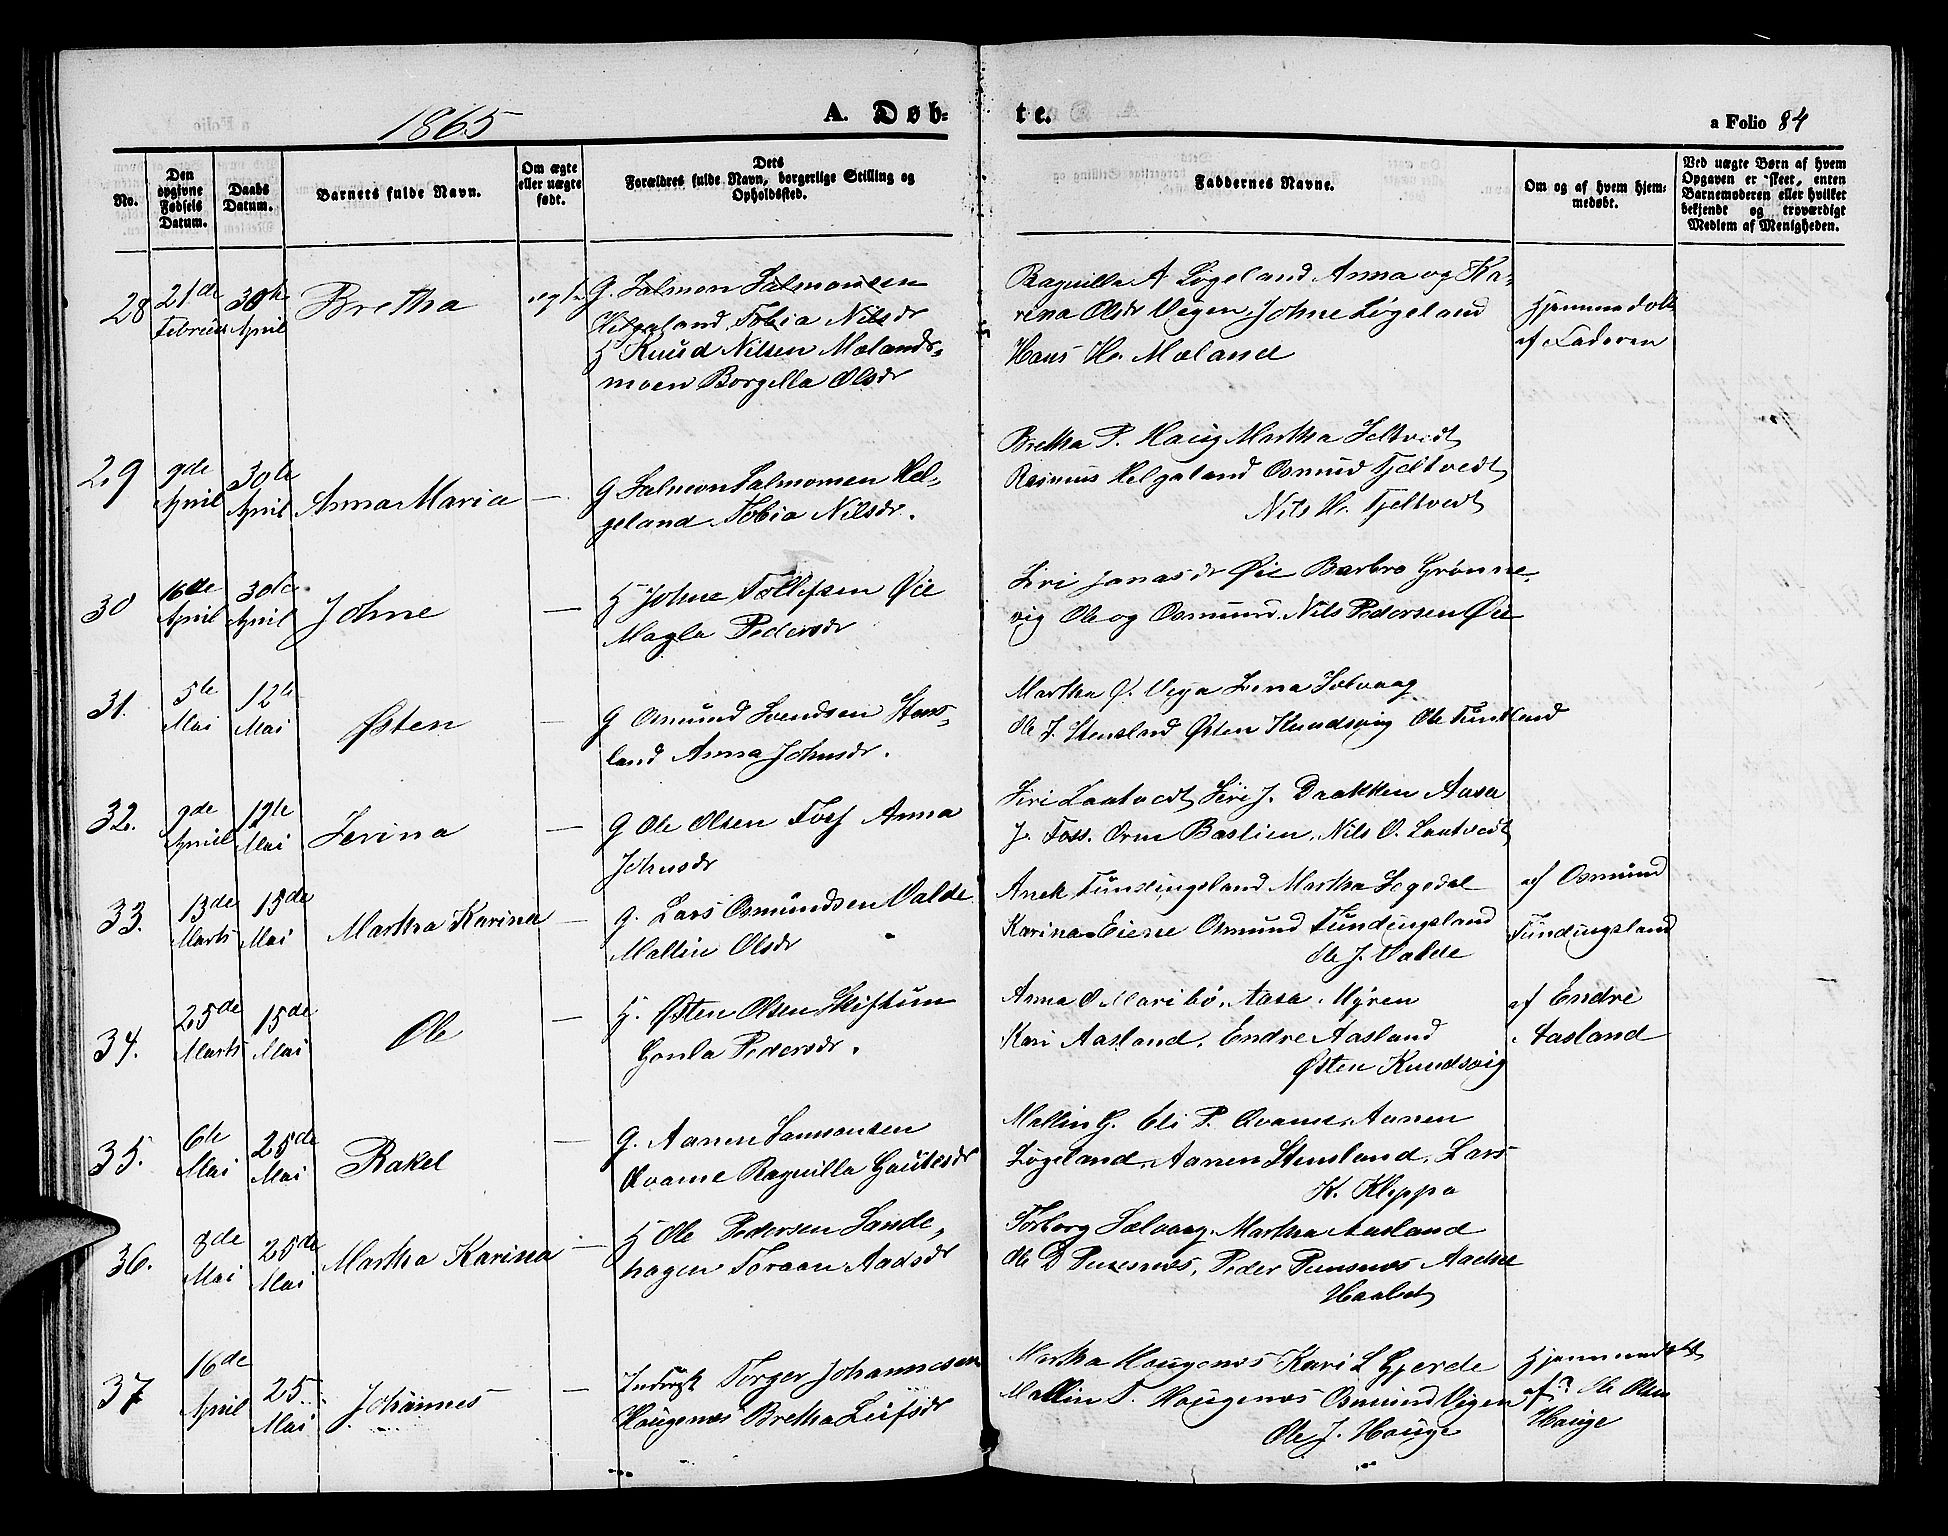 1865
A. Døb-
te.
a Folio 84
No.
Den opgivne Fødsels Datum.
Daabs Datum.
Barnets fulde Navn.
Om ægte eller uægte født.
Dets Forældres fulde Navn, borgerlige Stilling og Opholdssted.
Faddernes Navne.
Om og af hvem hjemmedøbt.
Ved uægte Børn af hvem Opgaven er skeet, enten Barnemoderen eller hvilket bekjendt og troværdigt Medlem af Menigheden.
28 21de Februar 30te April Bretha
G. Salmon Salmonsen
Helgeland Tobia Nilsdr
H Knud Nilsen Mælands-
moen Borgella Olsdr
Ragnilla A Løgeland Anna og Ka-
rina Olsdr Vegen Johne Løgeland
Hans H. Mæland
Hjemmedøbt
af Faderen
29 9de April 30te April Anna Maria —
G Salmon Salmonsen Hel-
geland Tobia Nilsdr.
Bretha P. Haug Martha Feltvedt
Rasmus Helgaland Osmund Fjeltvedt
Nils H. Fjeltvedt
30 16de April 30te April Johne —
H Johne Tollefsen Øie
Magla Pedersdr
Siri Jonasdr Øie Barbro Grønne-
vig Ole og Osmund, Nils Pedersen Øie
31. 5te Mai 12te Mai Østen —
G Osmund Svendsen Stens-
land Anna Johnsdr.
Martha Ø. Lena Selvaag
Ole J. Stensland Østen Knudsvig Ole
32. 9de April 12te Mai Serina —
G Ole Olsen Foss Anna
Johnsdr
Siri Lautvedt, Siri J. Brakken Aasa
J. Foss. Orm Bastien, Nils O. Lautvedt
33. 13de Marts 15de Mai Martha Karina —
G. Lars Osmundsen Valde
Mallin Olsdr
Fundingsland Martha Søgedal
Karina Eiene Osmund Fundingsland
Ole J. Valde
af Osmund
Fundingsland
34. 25de Marts 15de Mai Ole —
H. Østen Olsen Skiftun
Gonla Pedersdr.
Anna O Maribø, Aasa Myren
Kari Aasland, Endre Aasland
Østen Knudsvig
af Endre
Aasland
35. 6te Mai 25de Mai Rakel —
G. Aanen Samsonsen
Qvame Ragnilla Gautesdr
Mallin G. Eli P. Qvame, Aanen
Løgeland, Aanen Stensland, Lars
K. Kleppa
36. 8de Mai 25de Mai Martha Karina —
H Ole Pedersen Sande-
hagen Toraan Aadsdr
Torborg Sælvaag, Martha Aasland
Ole D Punsnæs, Peder Punsnæs Aadne
37 16de April 25 Mai Johannes —
Inderst Torger Johannesen
Haugenæs Bretha Leifsdr
Martha Haugenæs Kari L Gjerde
Mallin T. Haugenæs Osmund Vegen
Ole J. Hauge
Hjemmedøbt
af? Ole Olsen
Hauge